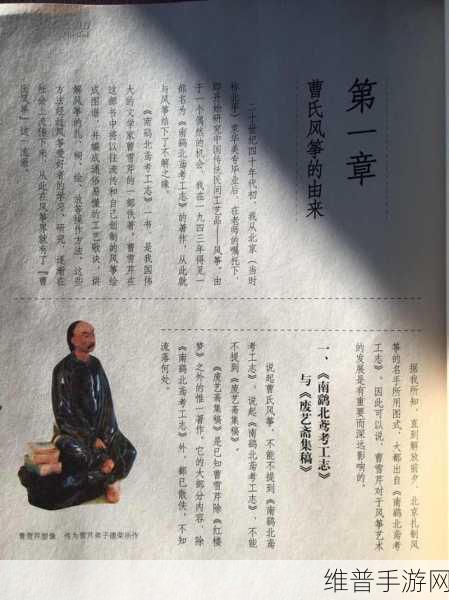 第一章
曹氏风筝的由来
二十世纪四十年代初，我从北京（当时
称北平）京华美专毕业后，在老师的嘱托下，
即开始研究中国传统民间工艺品——风筝。由
于一个偶然的机会，我在一九四三年得见一
部名为《南鹞北鸢考工志》的著作，从此就
与风筝结下了不解之缘。
《南鹞北鸢考工志》一书，是我国伟
大的文学家曹雪芹的一部佚著。曹雪芹在
这部书中将以往流传和自己创制的风筝绘
成图谱，并编成通俗易懂的工艺歌诀，讲
解风筝的扎、糊、绘、放等操作方法。这些
方法经过风筝爱好者的学习、研究，逐渐在
社会上流传下来。从此在风筝界就有了“曹
氏风筝”这一流派。
据我所知，直到解放前夕，北京扎制风
筝的名手所用图式，大都出自《南鹞北鸢考
工志》。因此可以说，曹雪芹对于风筝艺术
的发展是有重要而深远影响的。
一、《南鹞北鸢考工志》
与《废艺斋集稿》
说起曹氏风筝，不能不提到《南鹞北鸢
考工志》，说起《南鹞北鸢考工志》，不能
不提到《废艺斋集稿》。
《废艺斋集稿》是已知曹雪芹除《红楼
梦》之外的惟一著作，它的大部分内容，除
《南鹞北鸢考工志》外，都已散佚，不知
流落何处。
曹雪芹塑像 传为雪芹弟子德荣所作
维普手游网